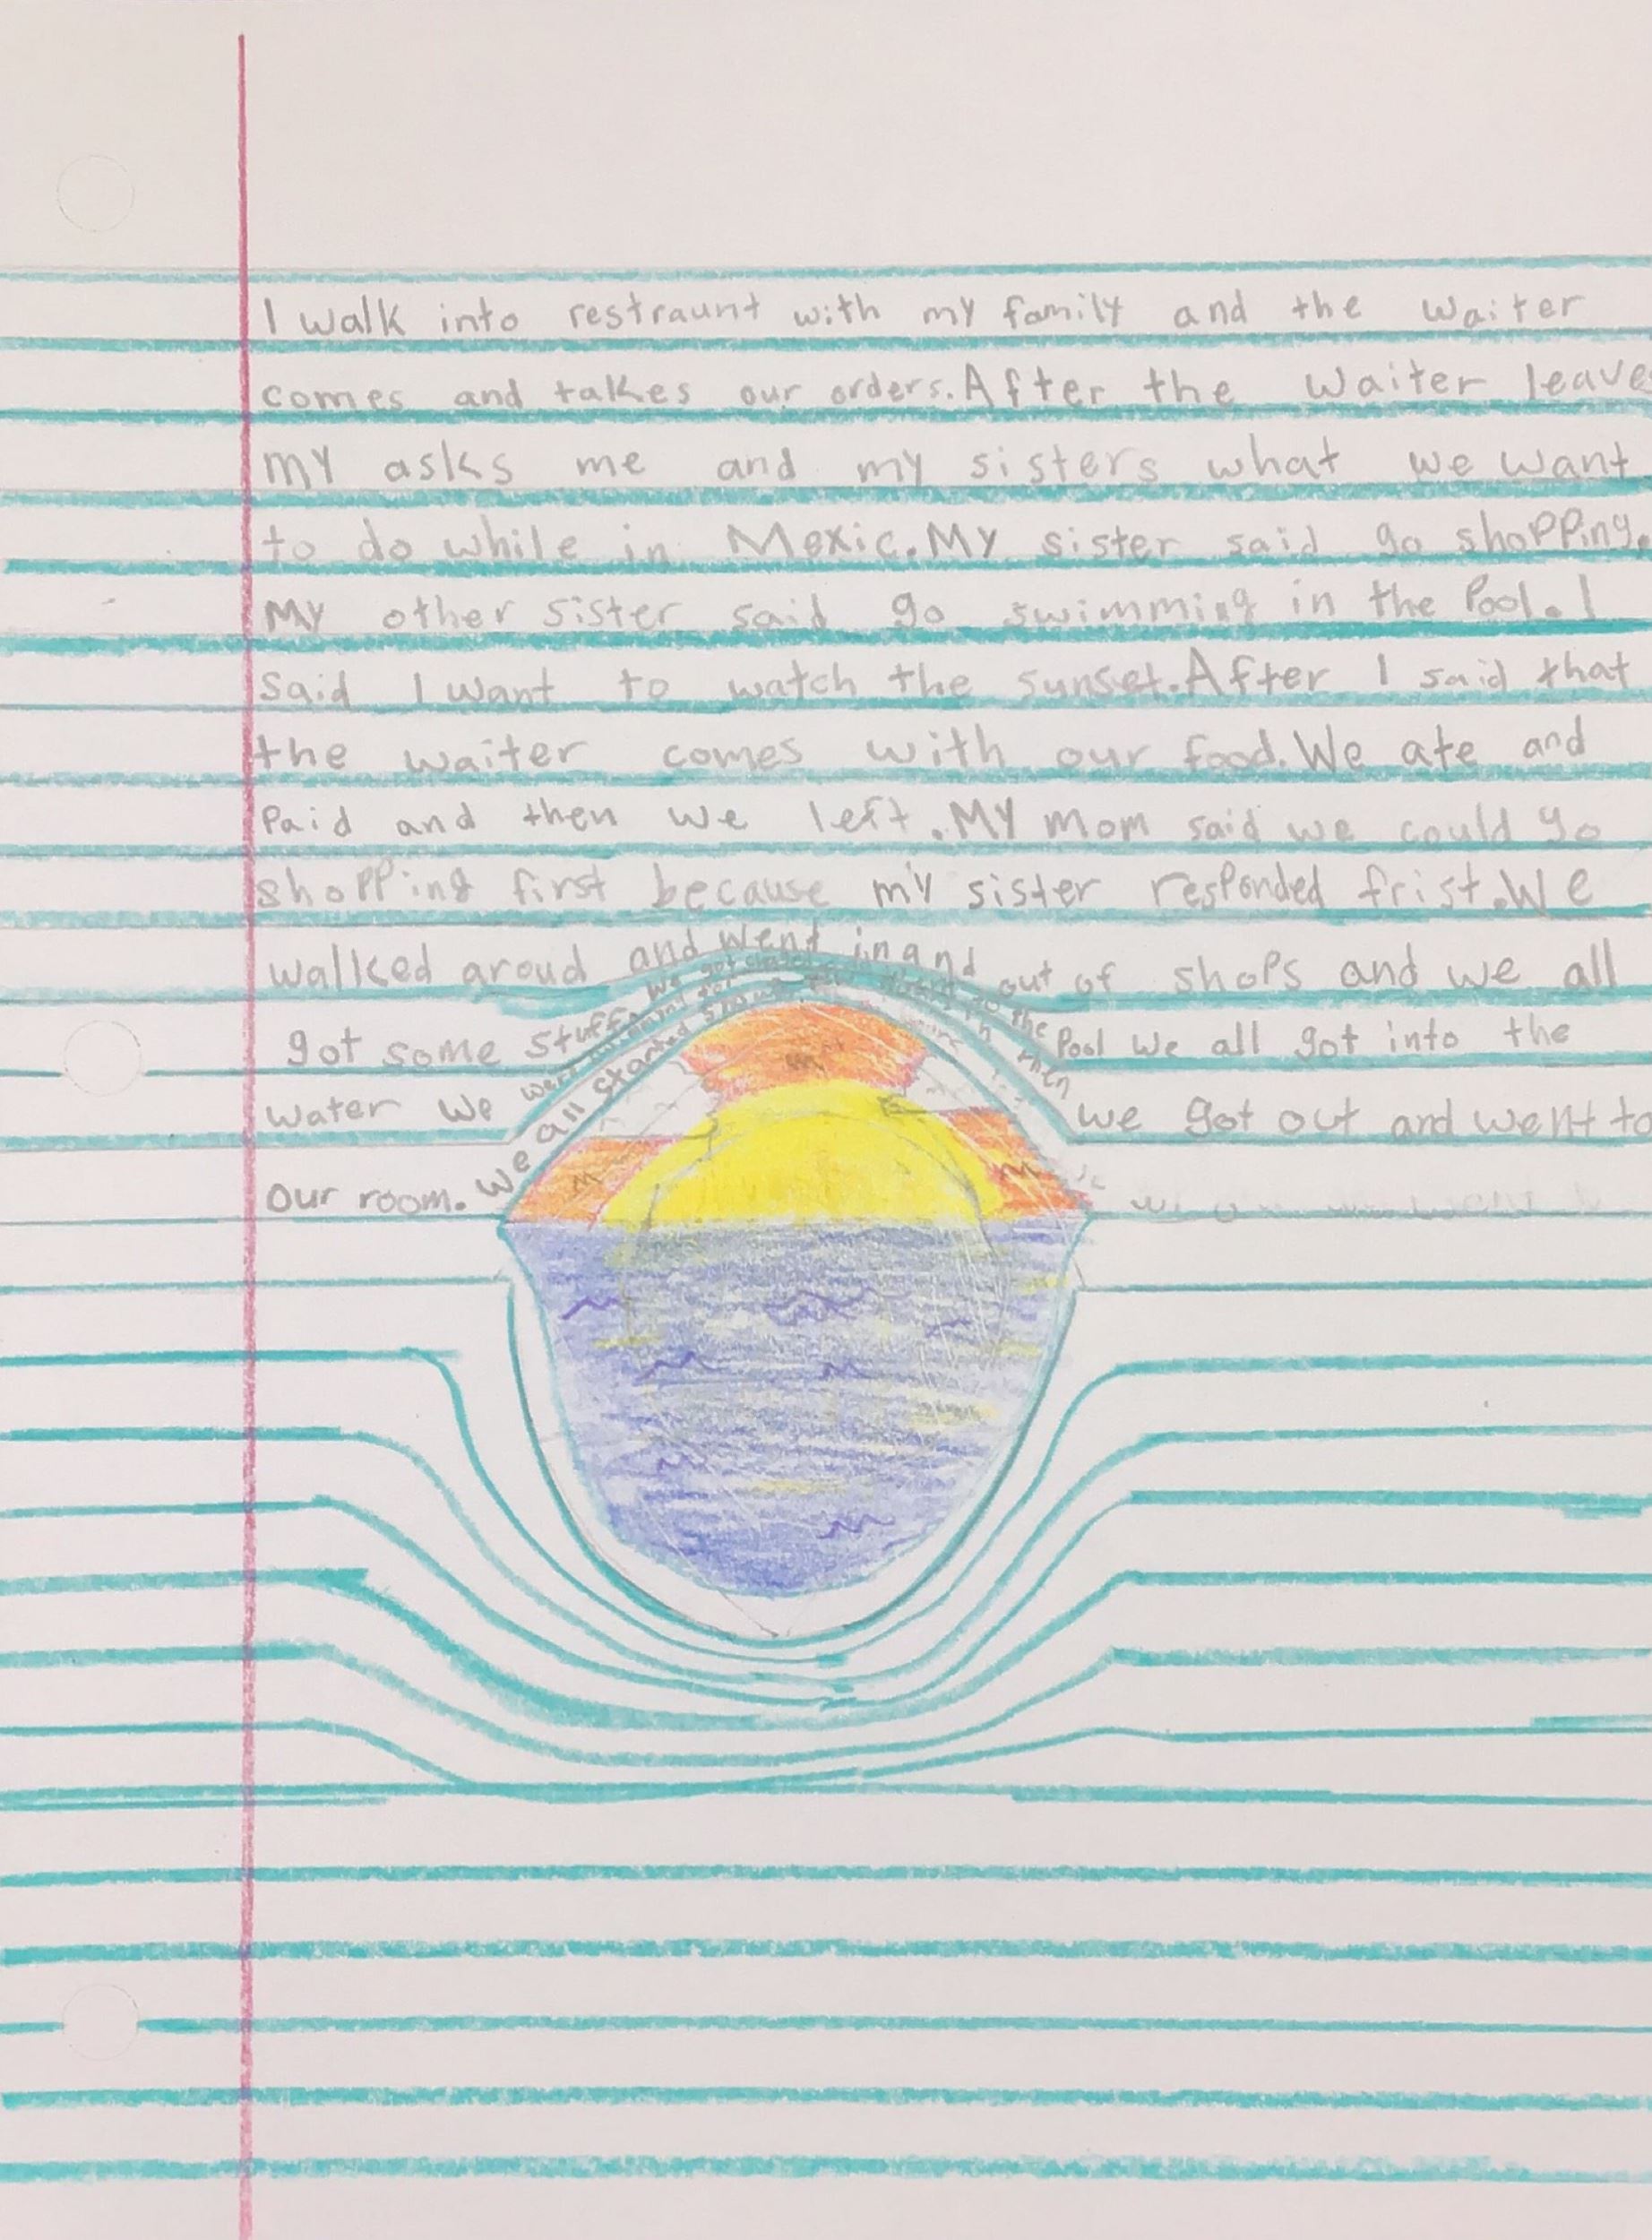 I walk into restraunt with my family and the waiter
comes and takes our orders. After the waiter leaves
my asks me and my sisters what we want
to do while in Mexic. My sister said go shopping.
My other sister said go swimming in the Pool. I
said I want to watch the sunset. After I said that
the waiter comes with our food. We ate and
Paid and then we left. My mom said we could go
shopping first because my sister responded frist. We
walked aroud and went in and out of shops and we all
got some stuff. We got the Pool We all got into the
water We were then we got out and went to
our room. We all started